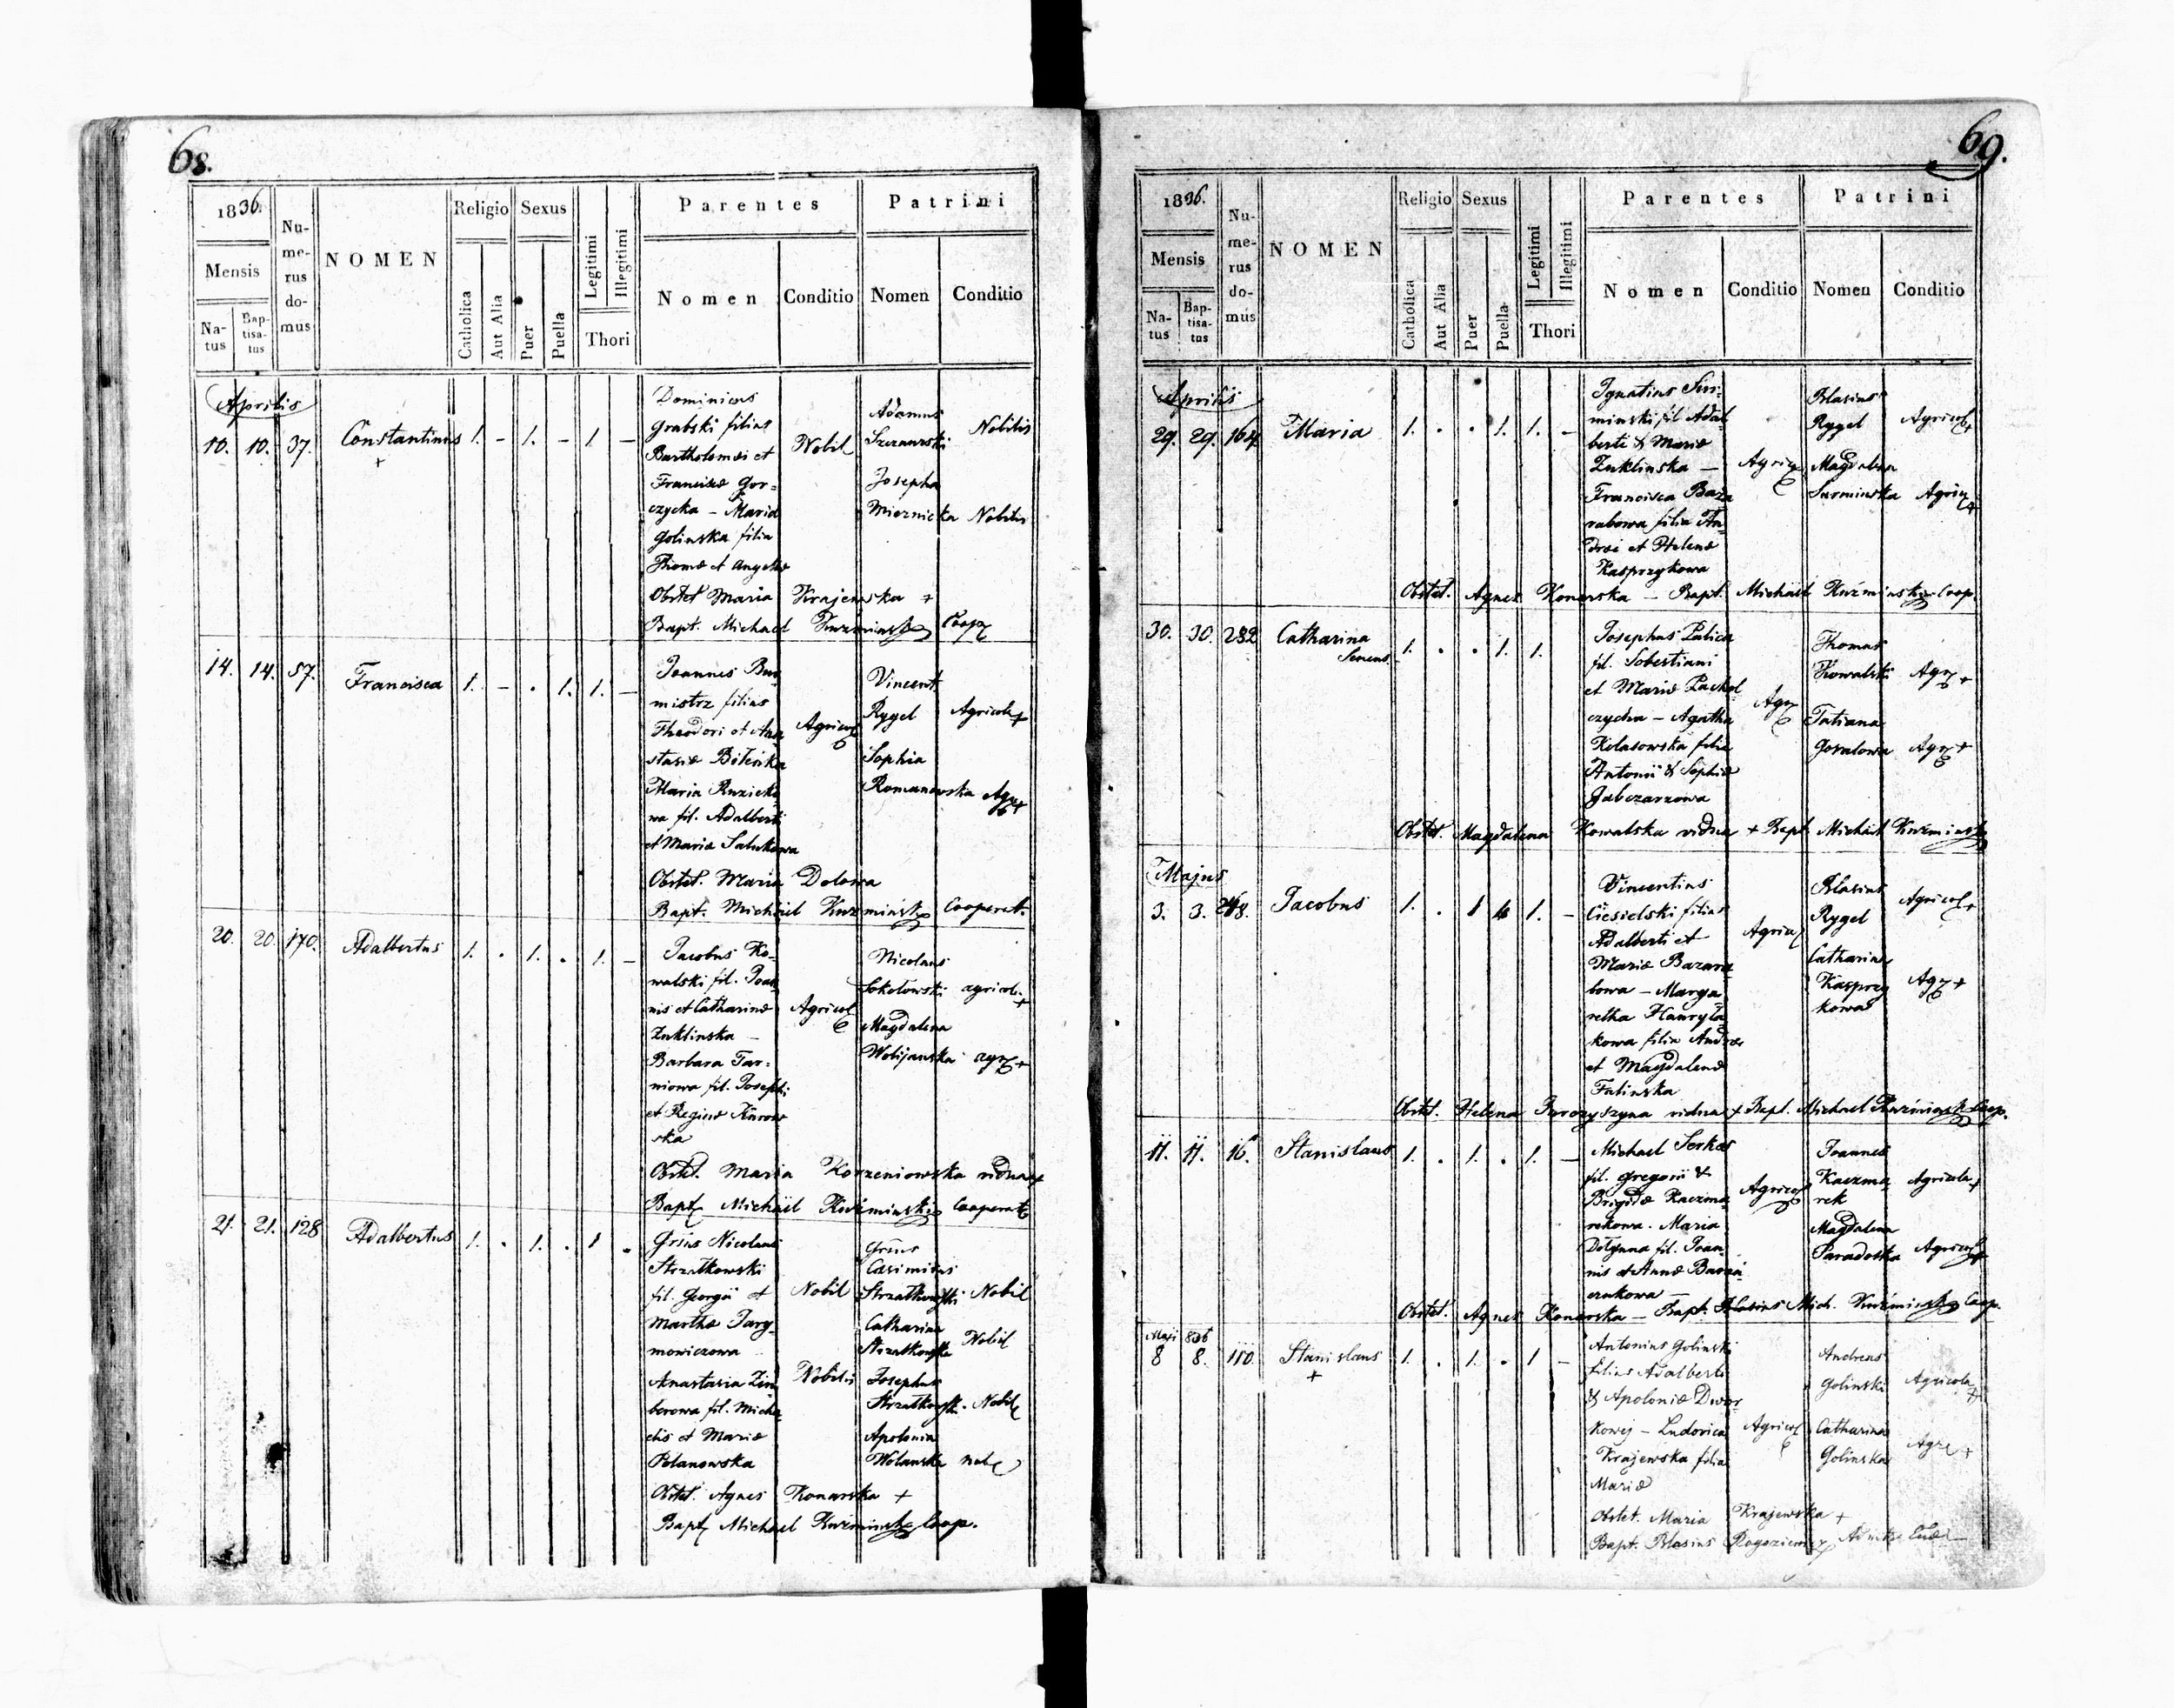 68.
1836.
Mensis
Na-
tus
Bap-
tisa-
tus
Nu-
me-
rus
do-
mus
NOMEN
Religio
Catholica
Aut Alia
Sexus
Puer
Puella
Legitimi
Illegitimi
Thori
Parentes
Nomen
Conditio
Patrini
Nomen
Conditio
Aprilis
10. 10. 37. Constantinus 1. - 1. - 1 -
+
Dominicus
Grabski filius
Bartholomæi et
Franciscæ Gor=
czycka - Maria
Golinska filia
Thomæ et Angelæ
Nobil
Adamus
Szczawski
Nobilis
Josepha
Miernicka Nobilis
Obstet Maria Krajewska +
Bapt. Michael Kuźminski Coop
14. 14. 57. Francisca 1. - . 1. 1. -
Joannes Bur
mistrz filius
Theodori et Ana
stasiæ Bilenka
Maria Ruzicko
wa fil. Adalberti
et Mariæ Salukowa
Agricol
Vincent
Rygel Agricola +
Sophia
Romanowska Agr +
Obstet. Maria Dolowa
Bapt. Michael Kuzminski Cooperat.
20. 20. 170. Adalbertus 1. . 1. . 1. -
Jacobus Ko-
walski fil. Joan
nis et Catharinæ
Zuklinska -
Barbara Tar-
niowa fil. Josephi
et Reginæ Kurow
ska
Agricol
Nicolaus
Sokolowski agricol. +
Magdalena
Wolijanska agr +
Obstet. Maria Korzeniowska vidua +
Bapt Michael Kuźminski Cooperat
21. 21. 128 Adalbertus 1. . 1. . 1 .
Grsus Nicolaus
Strzałkowski
fil. Georgii et
Marthæ Jary-
mowiczowa
Anastasia Zim
berowa fil. Micha
elis et Mariæ
Polanowska
Nobil
Nobilis
Grsus
Casimirus
Strzałkowski Nobil
Catharina
Strzałkowska Nobil
Josephus
Strzałkowski. Nobil
Apolonia
Wolanska nob
Obstet. Agnes Konarska +
Bapt Michael Kuźminski Coop.
69.
1836.
Mensis
Na-
tus
Bap-
tisa-
tus
Nu-
me-
rus
do-
mus
NOMEN
Religio
Catholica
Aut Alia
Sexus
Puer
Puella
Legitimi
Illegitimi
Thori
Parentes
Nomen
Conditio
Patrini
Nomen
Conditio
Aprilis
29. 29. 164 Maria 1. . . 1. 1. -
Ignatius Sur-
minski fil Adal
berti & Mariæ
Zuklinska -
Francisca Baza
rabowa filia An
dreæ et Helenæ
Kasprzykowa
Agric
Blasius
Rygel Agricol +
Magdalena
Surminska Agric +
Obstet. Agnes Konarska - Bapt. Michael Kuźminski Coop.
30. 30. 282 Catharina 1. . . 1. 1.
Senens.
Josephus Palica
fil. Sobestiani
et Mariæ Pachol
czycha - Agatha
Kolasowska filia
Antonii & Sophiæ
Gabczarzowa
Agr
Thomas
Kowalski Agr +
Tatiana
Goralowa Agr +
Obstet. Magdalena Kowalska vidua + Bapt. Michael Kuźminski
Majus
3. 3. 268. Jacobus 1. . 1 1. -
Vincentius
Ciesielski filius
Adalberti et
Mariæ Bazara
bowa - Marga
retha Hawryla
kowa filia Andreæ
et Magdalenæ
Falinska
Agric
Blasius
Rygel Agricol +
Catharina
Kasprzy
kowa Agr +
Obstet. Helena Jarczyszyna vidua + Bapt. Michael Kuźminski Coop.
17. 17. 16. Stanislaus 1. . 1. . 1. -
Michael Serkas
fil. Gregorii &
Brigidæ Kaczma
rekowa. Maria
Dolynna fil. Joan
nis et Annæ Bara
czukowa -
Agricol
Joannes
Kaczma
rek Agricola +
Magdalena
Paradoska Agricol +
Obstet. Agnes Konarska - Bapt. Blasius Mich. Kuźminski Coop.
Maji 836
8 8. 110. Stanislaus 1. . 1. . 1 -
+
Antonius Golinski
filius Adalberti
& Apoloniæ Dwor
kowej - Ludovica
Krajewska filia
Mariæ
Agricol
Andreas
Golinski Agricola +
Catharina
Golinska Agr +
Obstet. Maria Krajewska +
Bapt. Blasius Rogoziewicz